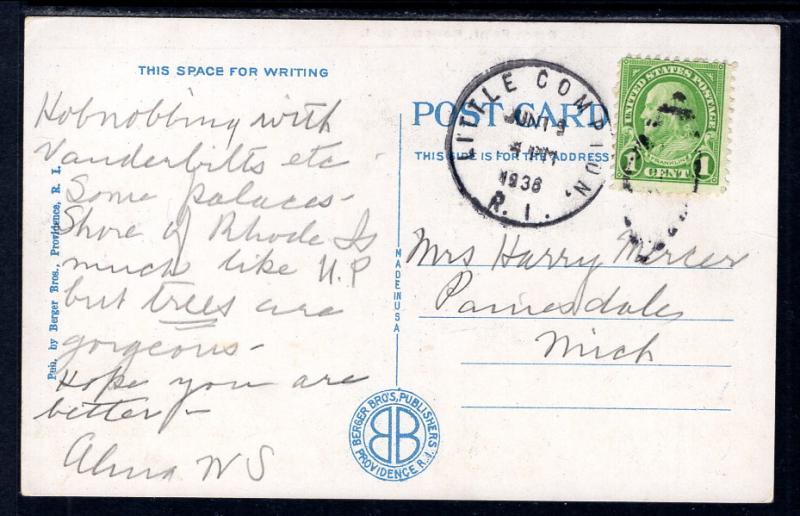 THIS SPACE FOR WRITING
Hobnobbing with
Vanderbilts etc -
Some palaces -
Shore of Rhode Is
much like U.P
but trees are
gorgeous -
Hope you are
better -
Alma W S
Pub. by Berger Bros., Providence, R. I.
POST CARD
THIS SIDE IS FOR THE ADDRESS
MADE IN USA
LITTLE COMPTON,
JUN
PM
1936
R. I.
UNITED STATES POSTAGE
FRANKLIN
1 CENT 1
Mrs Harry Mercer
Painesdale
Mich
BERGER BRO'S, PUBLISHERS
BB
PROVIDENCE R.I.